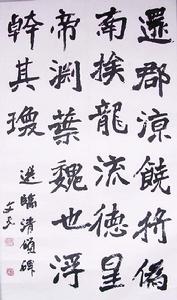 還郡涼饒將偽
南挨龍流德皇
帝渊葉魏也浮
幹其瓊
選臨清頌碑